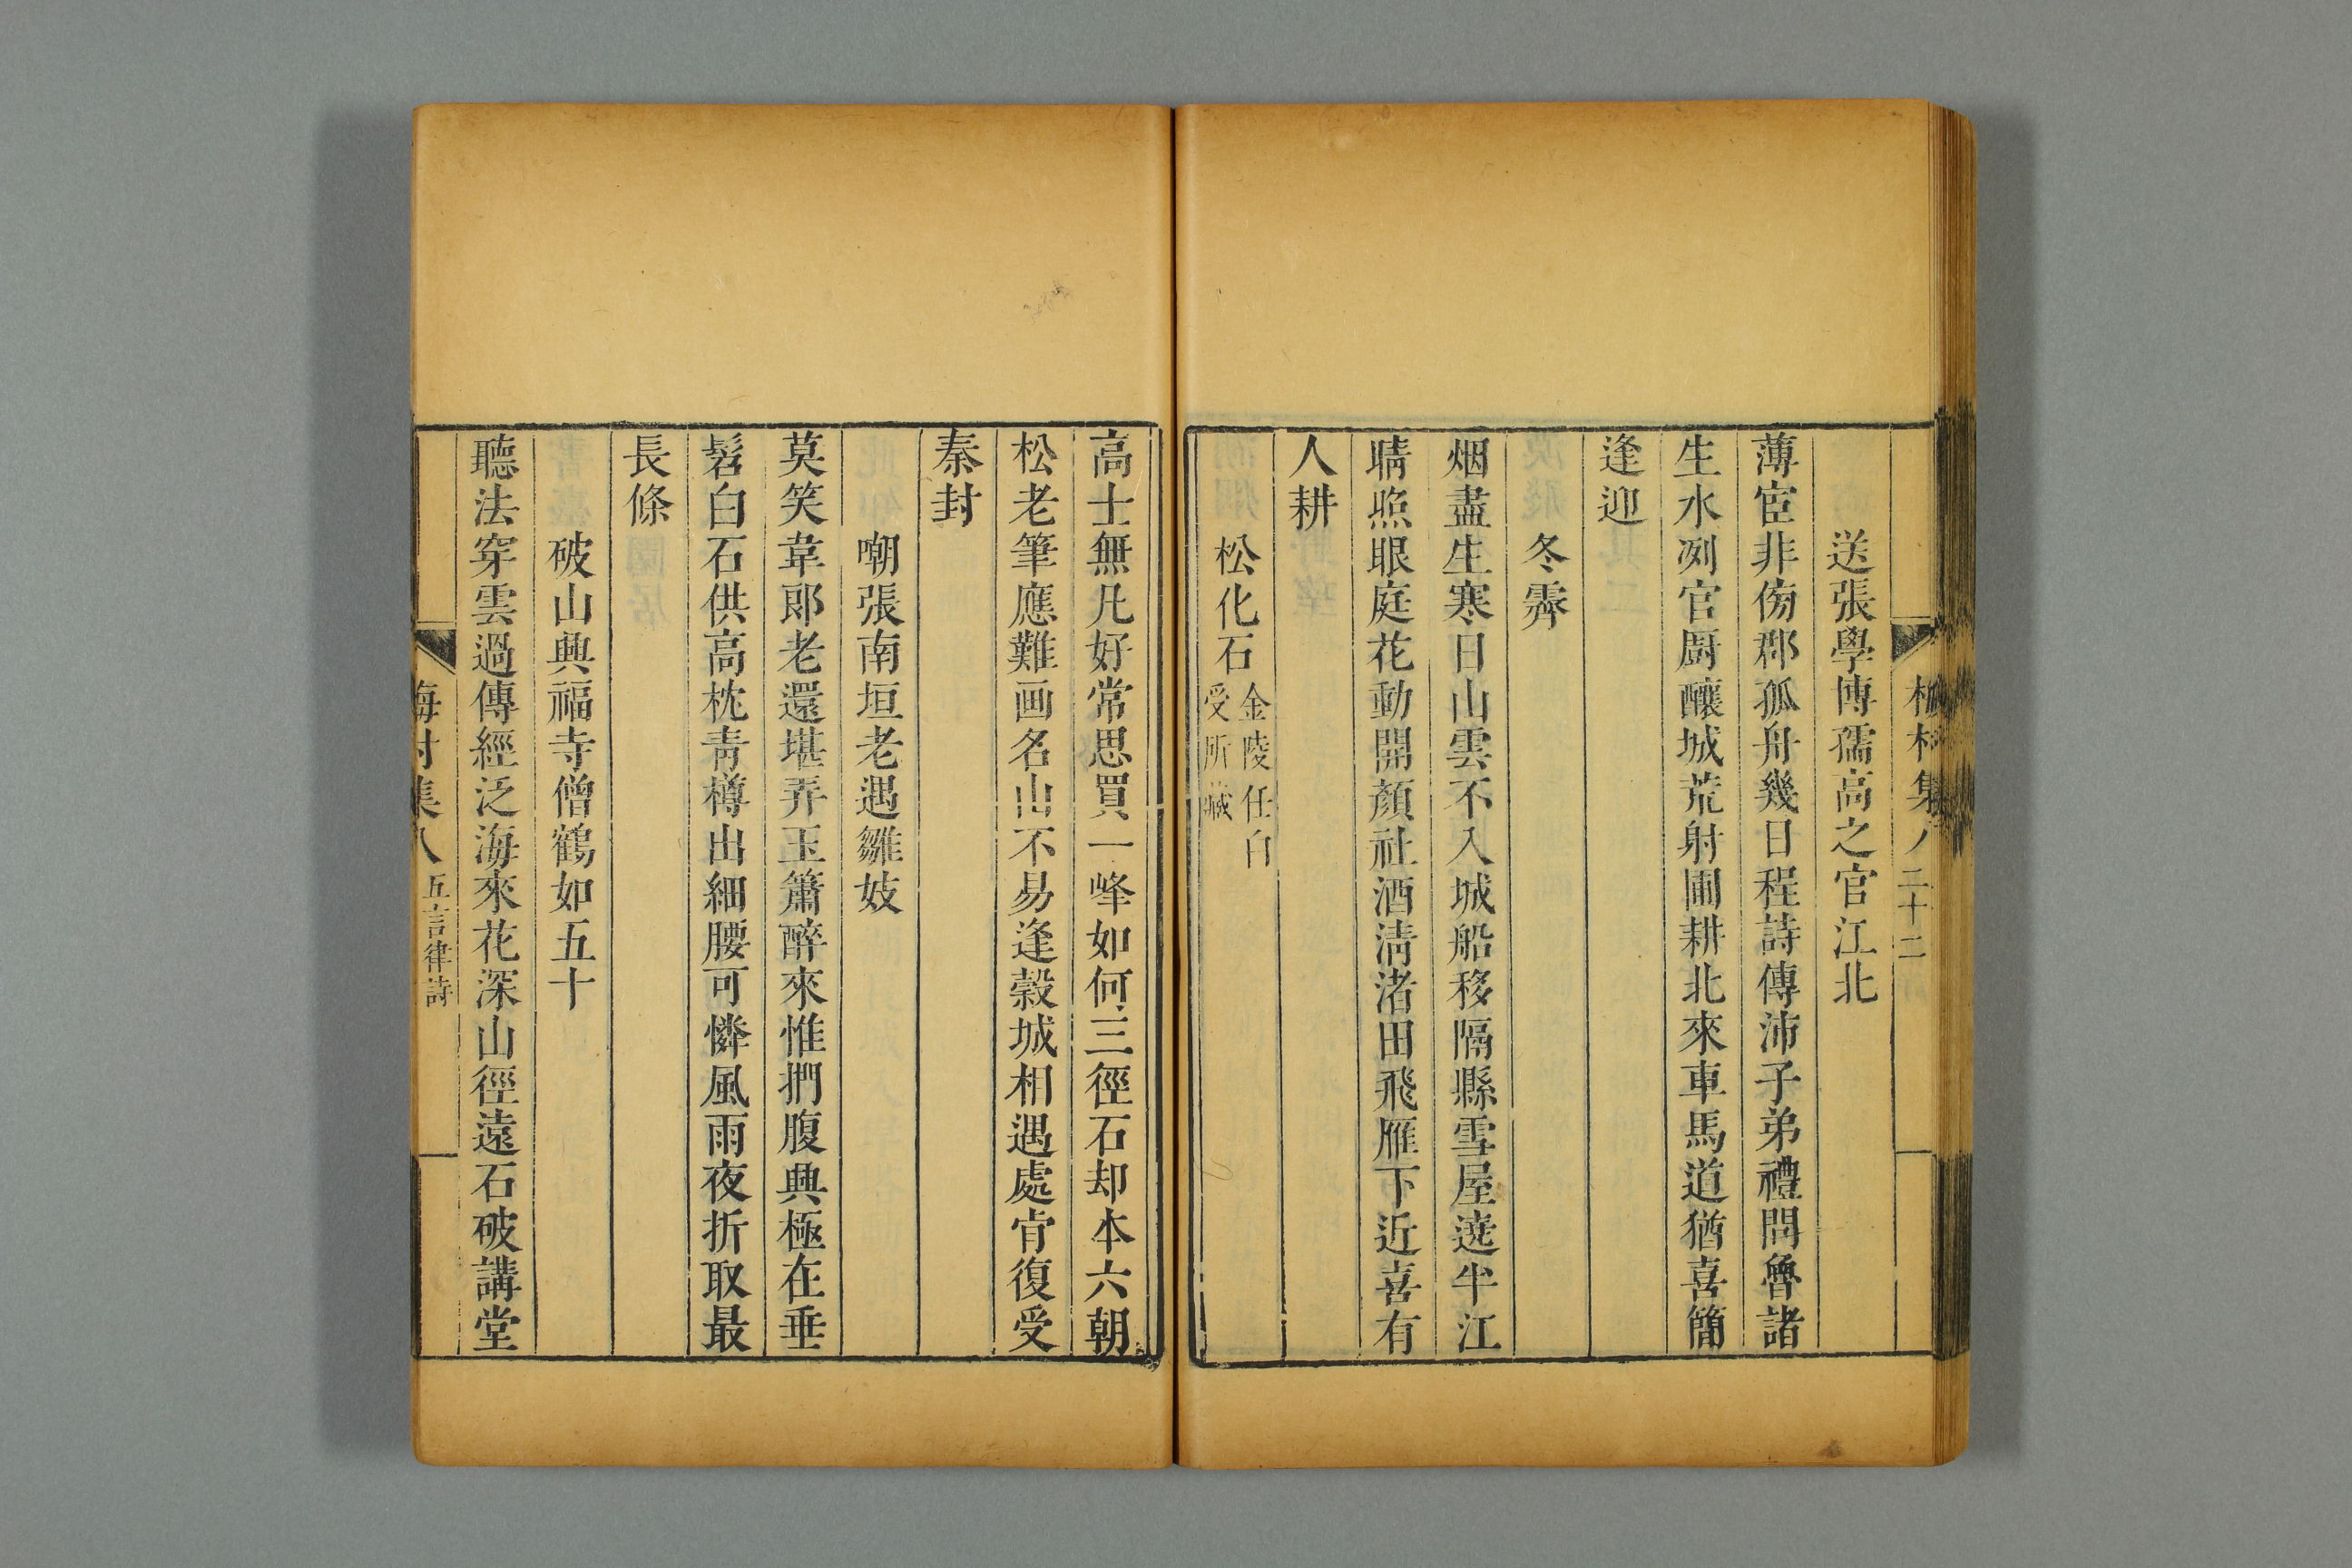 送張學博孺高之官江北
薄宦非傍郡孤舟幾日程詩傳沛子弟禮問魯諸
生水冽官厨釀城荒射圃耕北來車馬道猶喜簡
逢迎
冬霽
烟盡生寒日山雲不入城船移隔縣雪屋遶半江
晴照眼庭花動開顏社酒清渚田飛雁下近喜有
人耕
松化石金陵任白受所藏
高士無凡好常思買一峰如何三徑石却本六朝
松老筆應難画名山不易逢穀城相遇處肯復受
秦封
嘲張南垣老遇雛妓
莫笑韋郎老還堪弄玉簫醉來惟捫腹興極在垂
髫白石供高枕青樽出細腰可憐風雨夜折取最
長條
破山興福寺僧鶴如五十
聽法穿雲過傳經泛海來花深山徑遠石破講堂
梅村集八 五言律詩
梅村集八 二十二